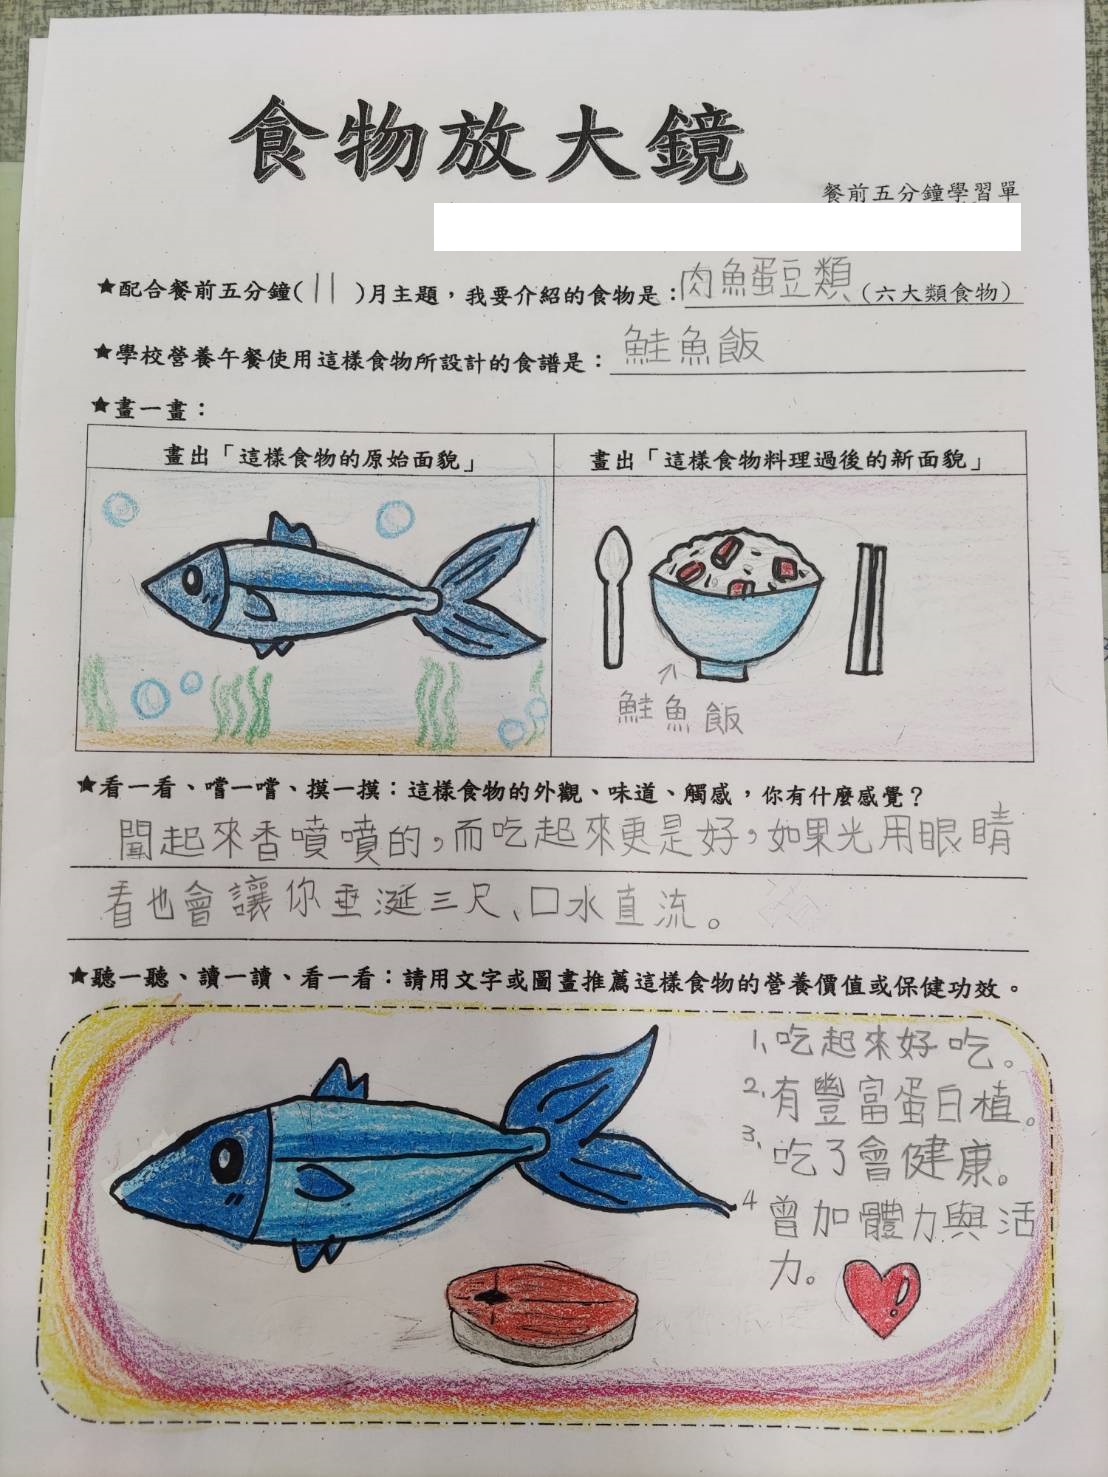 食物放大鏡
餐前五分鐘學習單
★配合餐前五分鐘(11)月主題，我要介紹的食物是：肉魚蛋豆類(六大類食物)
★學校營養午餐使用這樣食物所設計的食譜是：鮭魚飯
★畫一畫：
畫出「這樣食物的原始面貌」
畫出「這樣食物料理過後的新面貌」
鮭魚飯
★看一看、嚐一嚐、摸一摸：這樣食物的外觀、味道、觸感，你有什麼感覺？
聞起來香噴噴的，而吃起來更是好，如果光用眼睛
看也會讓你垂涎三尺、口水直流。
★聽一聽、讀一讀、看一看：請用文字或圖畫推薦這樣食物的營養價值或保健功效。
1、吃起來好吃。
2、有豐富蛋白植。
3、吃了會健康。
4 曾加體力與活
力。